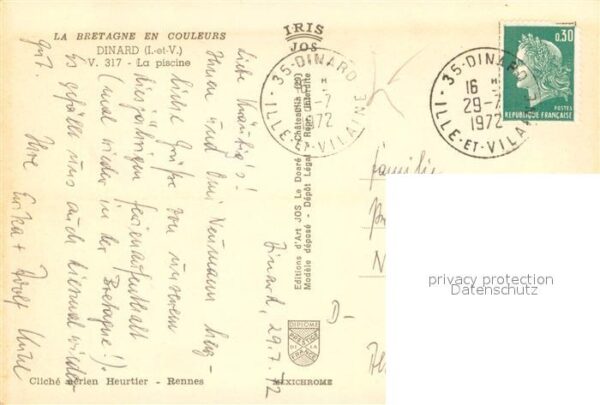 LA BRETAGNE EN COULEURS
DINARD (I.-et-V.)
V. 317 - La piscine
IRIS
JOS
35-DINARD
29-7
1972
ILLE-ET-VILAINE
35-DINARD
16 H
29-7
1972
ILLE-ET-VILAINE
0,30
POSTES
REPUBLIQUE FRANÇAISE
Dinard, 29.7.72
Liebe
Ihnen und Omi Neumann herz-
liche Grüße von unserem
diesjährigen Ferienaufenthalt
(mal wieder in der Bretagne!).
Es gefällt uns auch diesmal wieder
gut.
Ihre Erika + Rudolf
Editions d'Art JOS Le Doaré - Châteaulin
Modèle déposé - Dépôt Légal - Repr. interdite
Familie
D-
privacy protection
Datenschutz
DIPLOME
PRESTIGE
DE LA
FRANCE
MEXICHROME
Cliché aérien Heurtier - Rennes